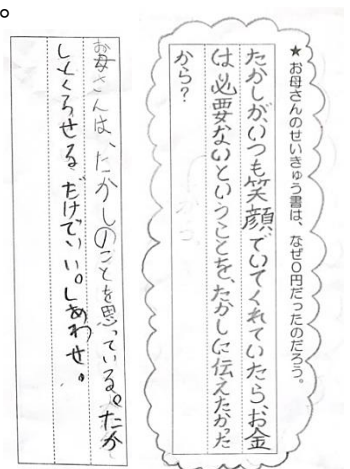 。
★お母さんのせいきゅう書は、なぜ0円だったのだろう。
たかしが、いつも笑顔でいてくれていたら、お金
は必要ないということを、たかしに伝えたかった
から？
お母さんは、たかしのことを思っている。たか
しとくらせるだけでいい。しあわせ。